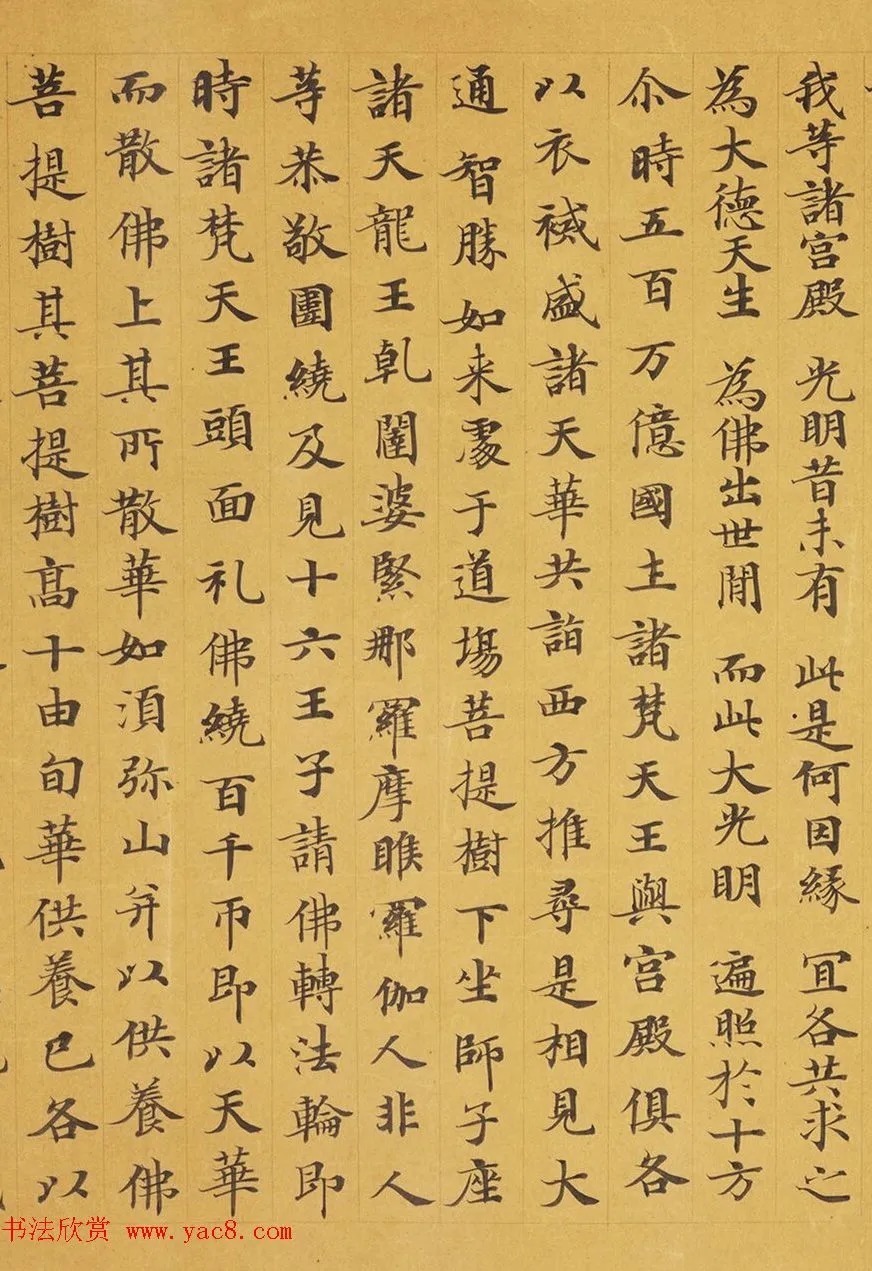 我等諸宮殿 光明昔未有 此是何因緣 冝各共求之
為大德天生 為佛出世間 而此大光明 遍照於十方
尒時五百万億國土諸梵天王與宮殿俱各
以衣祴盛諸天華共詣西方推尋是相見大
通智勝如来處于道塲菩提樹下坐師子座
諸天龍王乹闥婆緊那羅摩睺羅伽人非人
等恭敬圍繞及見十六王子請佛轉法輪即
時諸梵天王頭面礼佛繞百千帀即以天華
而散佛上其所散華如湏弥山并以供養佛
菩提樹其菩提樹髙十由旬華供養已各以
书法欣赏 www.yac8.com